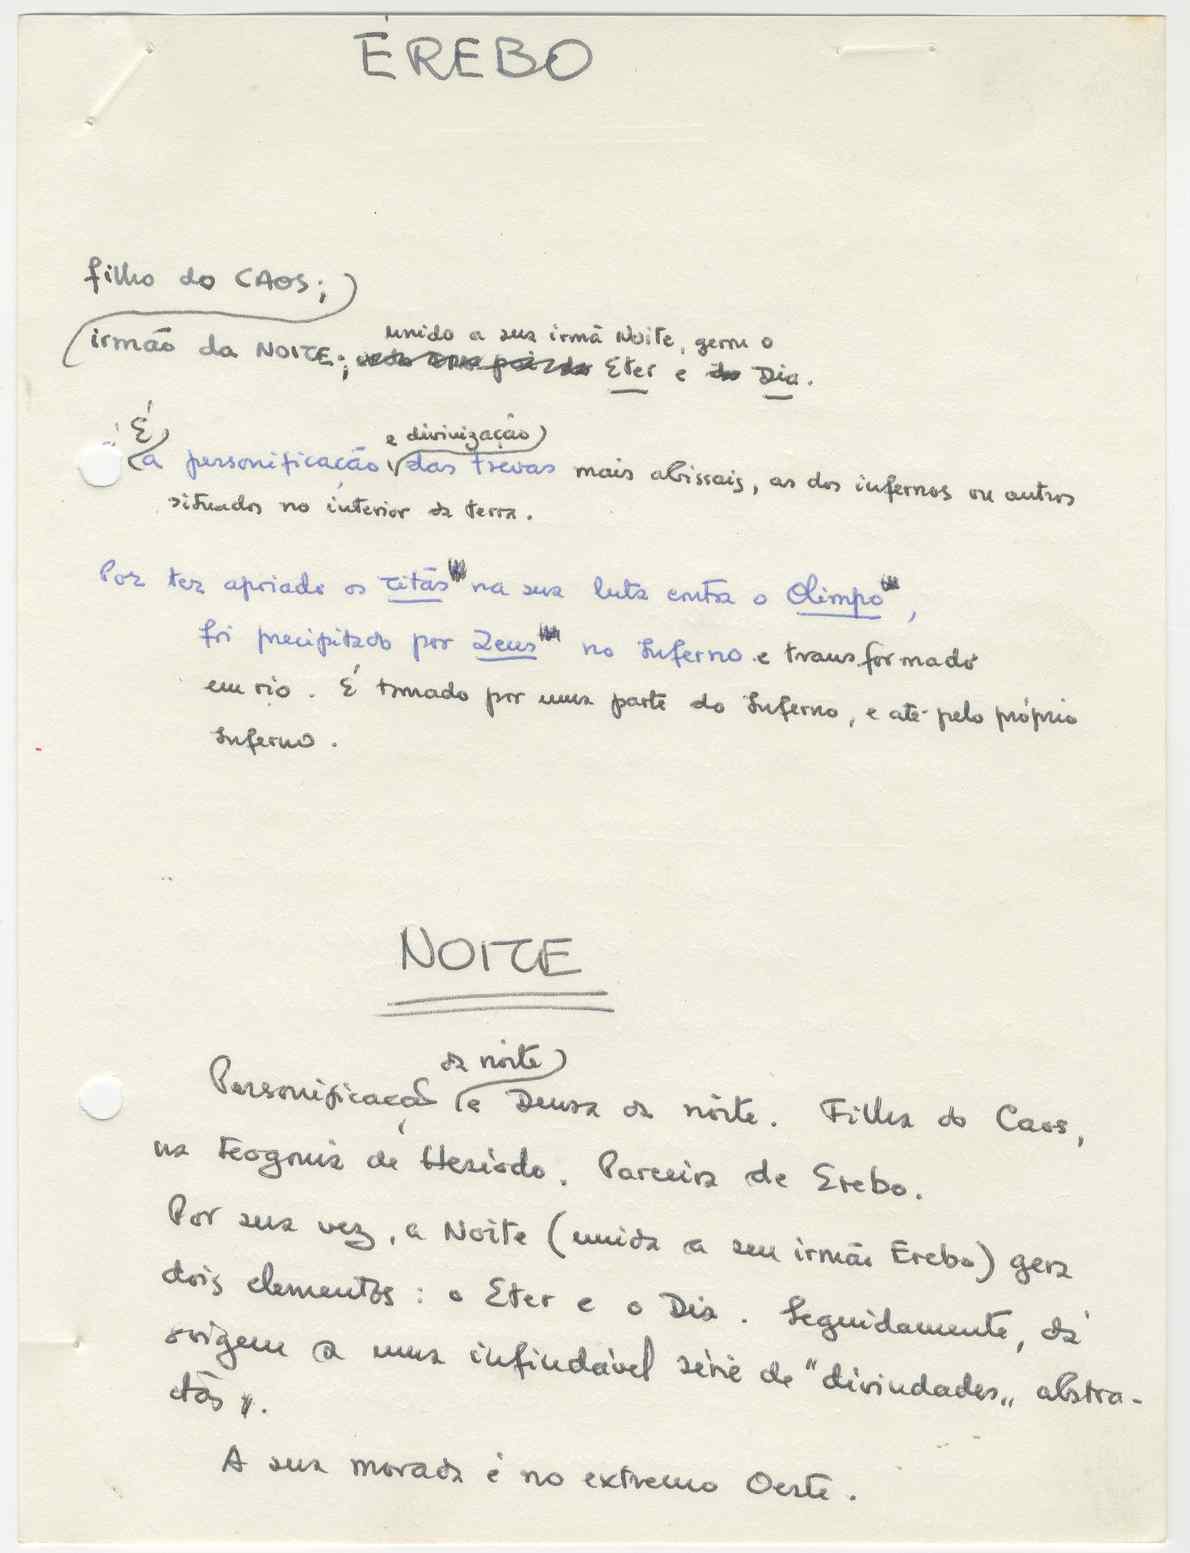 ÉREBO
filho do CAOS;
unido a sua irmã Noite, gerou o
irmão da NOITE; Eter e do Dia.
É e divinização
a personificação das trevas mais abissais, as dos infernos ou outros
situados no interior da terra.
Por ter apoiado os Titãs na sua luta contra o Olimpo,
foi precipitado por Zeus no Inferno e transformado
em rio. É tomado por uma parte do Inferno, e até pelo próprio
Inferno.
NOITE
da noite
Personificação e Deusa da noite. Filha do Caos,
na Teogonia de Hesíodo. Parceira de Erebo.
Por sua vez, a Noite (unida a seu irmão Erebo) gera
dois elementos: o Eter e o Dia. Seguidamente, dá
origem a uma infindável série de "divindades" abstra-
tas.
A sua morada é no extremo Oeste.